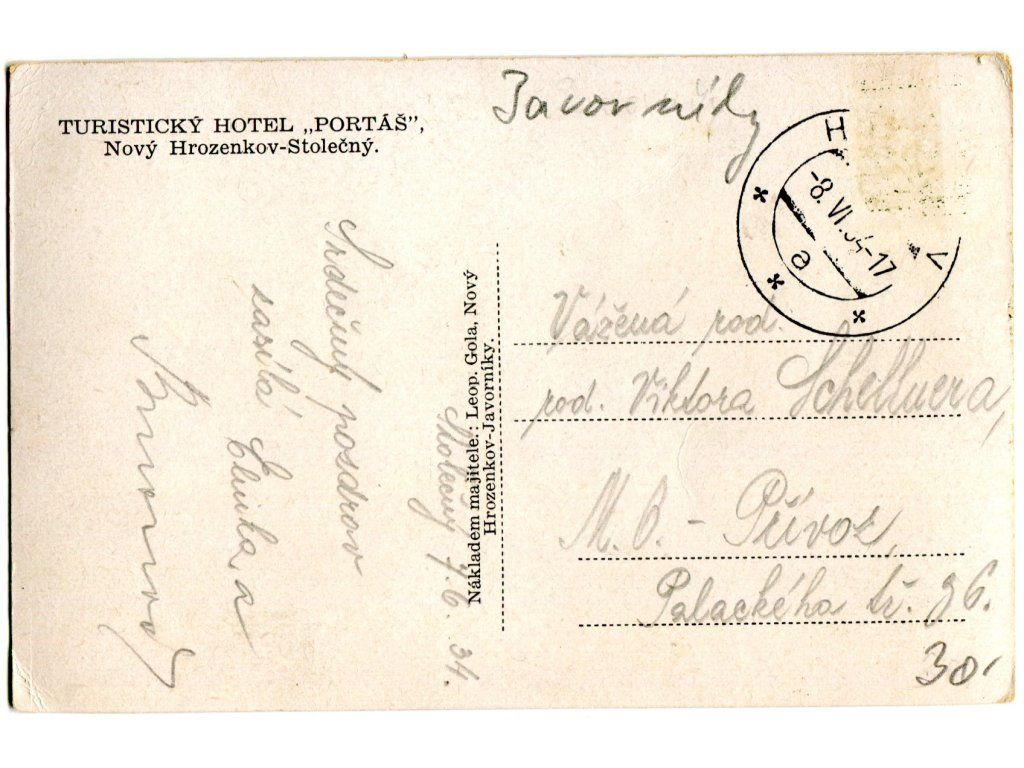 TURISTICKÝ HOTEL „PORTÁŠ”,
Nový Hrozenkov-Stolečný.
Javorníky
H V
-8.VI.34-17
a
Srdečný pozdrov
zasílá
a
Nákladem majitele.: Leop. Gola, Nový
Hrozenkov-Javorníky.
Stolečný 7.6. 34.
Vážená rod.
rod. Viktora
M. O. - Přívoz,
Palackého tř. 36.
30.